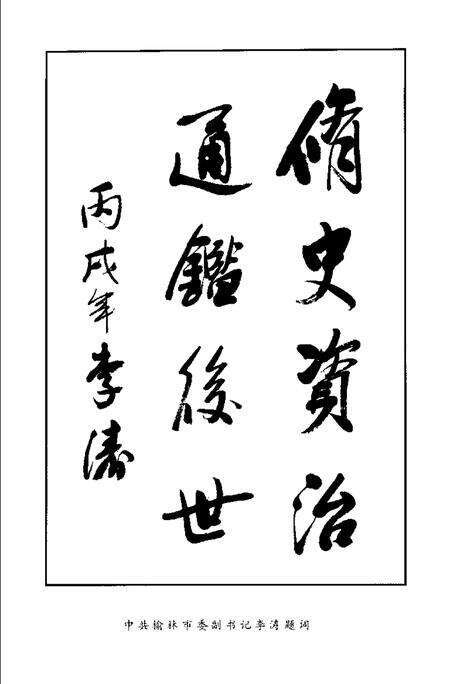 脩史資治
通鑑後世
丙戌年李濤
中共榆林市委副书记李涛题词